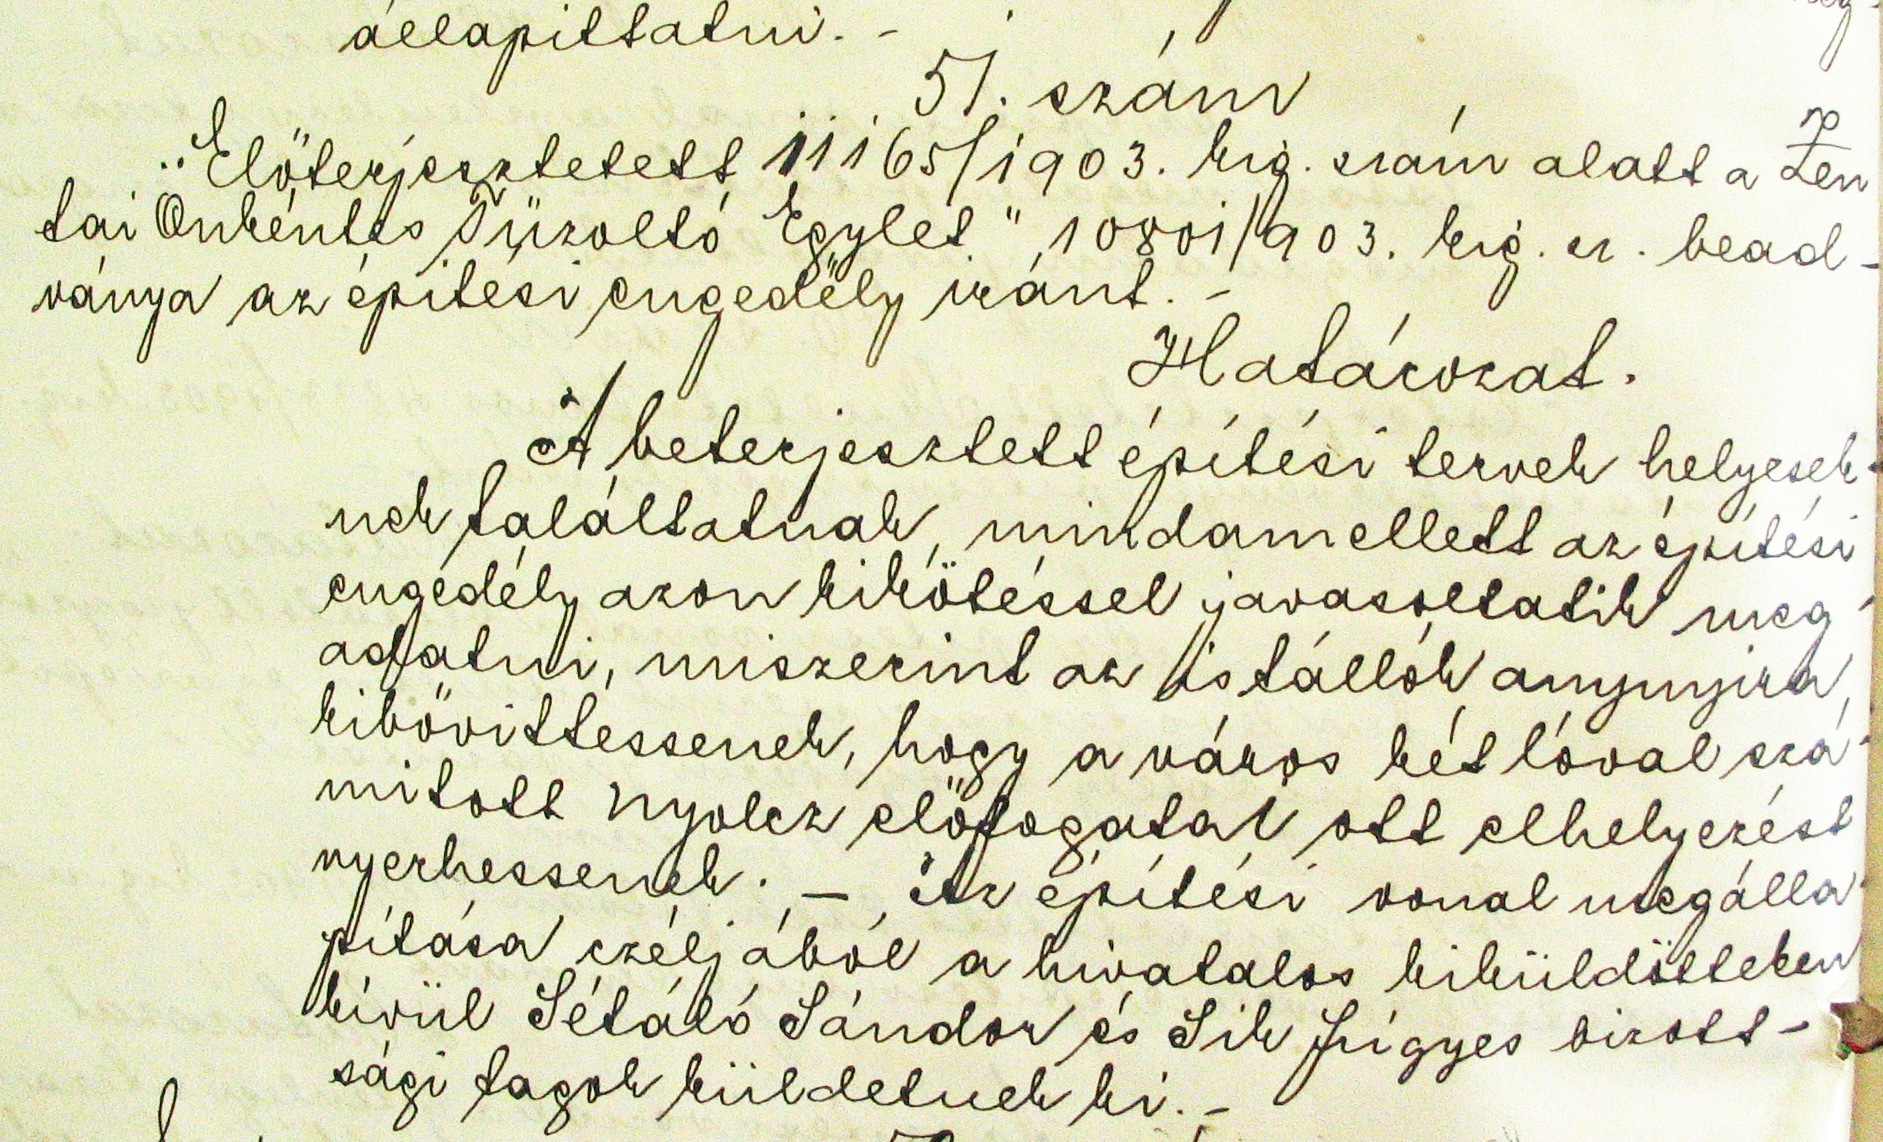 állapittatni. -
51. szám
„Előterjesztetett 11165/1903. kig. szám alatt a Zen
tai Önkéntes Tűzoltó Egylet" 10801/903. kig. sz. bead-
ványa az építési engedély iránt. -
Határozat.
A beterjesztett építési tervek helyesek-
nek találtatnak, mindamellett az építési
engedély azon kikötéssel javasoltatik meg-
adatni, miszerint az istállók anynyira
kibővittessenek, hogy a város két lóval szá-
mitott nyolcz előfogatai ott elhelyezést
nyerhessenek. - Az építési vonal megálla-
pítása czéljából a hivatalos kiküldötteken
kívül Sétáló Sándor és Sik Frigyes bizott-
sági tagok küldetnek ki. -